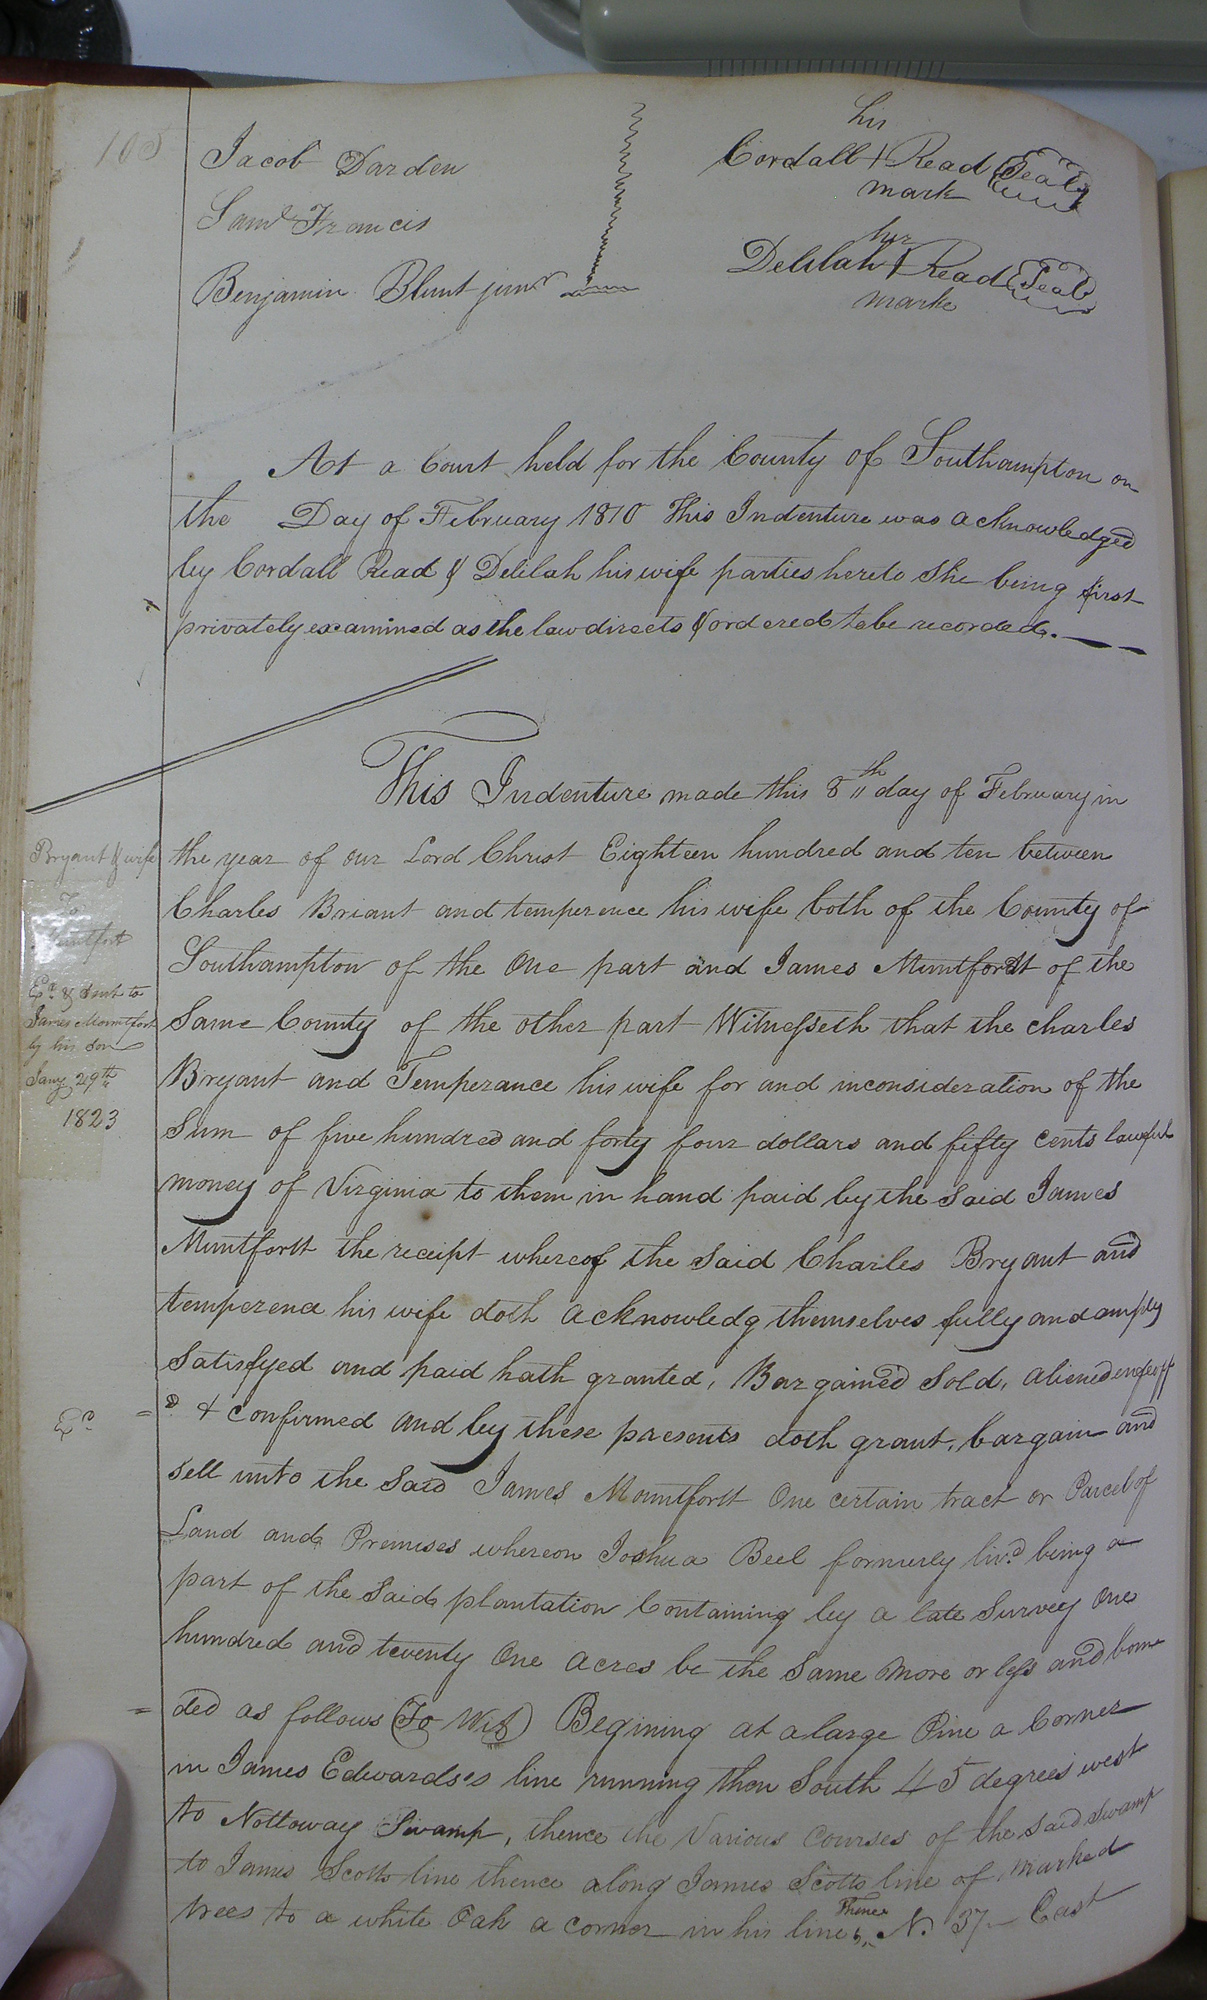 105
Jacob Darden
Saml Francis
Benjamin Blunt junr
his
Cordall + Read Seal
mark
her
Delilah + Read Seal
mark
At a Court held for the County of Southampton on
the Day of February 1810 This Indenture was acknowledged
by Cordall Read & Delilah his wife parties hereto She being first
privately examined as the law directs & ordered to be recorded.
This Indenture made this 8th day of February in
Bryant & wife
To
Muntfort
Exd & Sent to
James Mountfort
by his Son
Jany 29th
1823
the year of our Lord Christ Eighteen hundred and ten between
Charles Briant and temperence his wife both of the County of
Southampton of the One part and James Muntfortt of the
Same County of the other part Witnesseth that the charles
Bryant and Temperance his wife for and inconsideration of the
Sum of five hundred and forty four dollars and fifty cents lawful
money of Virginia to them in hand paid by the Said James
Muntfortt the receipt whereof the Said Charles Bryant and
temperence his wife doth acknowledg themselves fully and amply
Satisfyed and paid hath granted, Bargained Sold, aliened enfeoff
Exd
=d & confirmed and by these presents doth grant, bargain and
sell unto the Said James Mountfortt One certain tract or Parcel of
Land and Premises whereon Joshua Beel formerly livd being a
part of the Said plantation Containing by a late Survey One
hundred and twenty One acres be the Same more or less and boun
=ded as follows (To Wit) Begining at a large Pine a Corner
in James Edwards's line running then South 45 degrees west
to Nottoway Swamp, thence the Various Courses of the Said Swamp
to James Scotts line thence along James Scotts line of Marked
trees to a white Oak a corner in his line, Thence N. 37 East